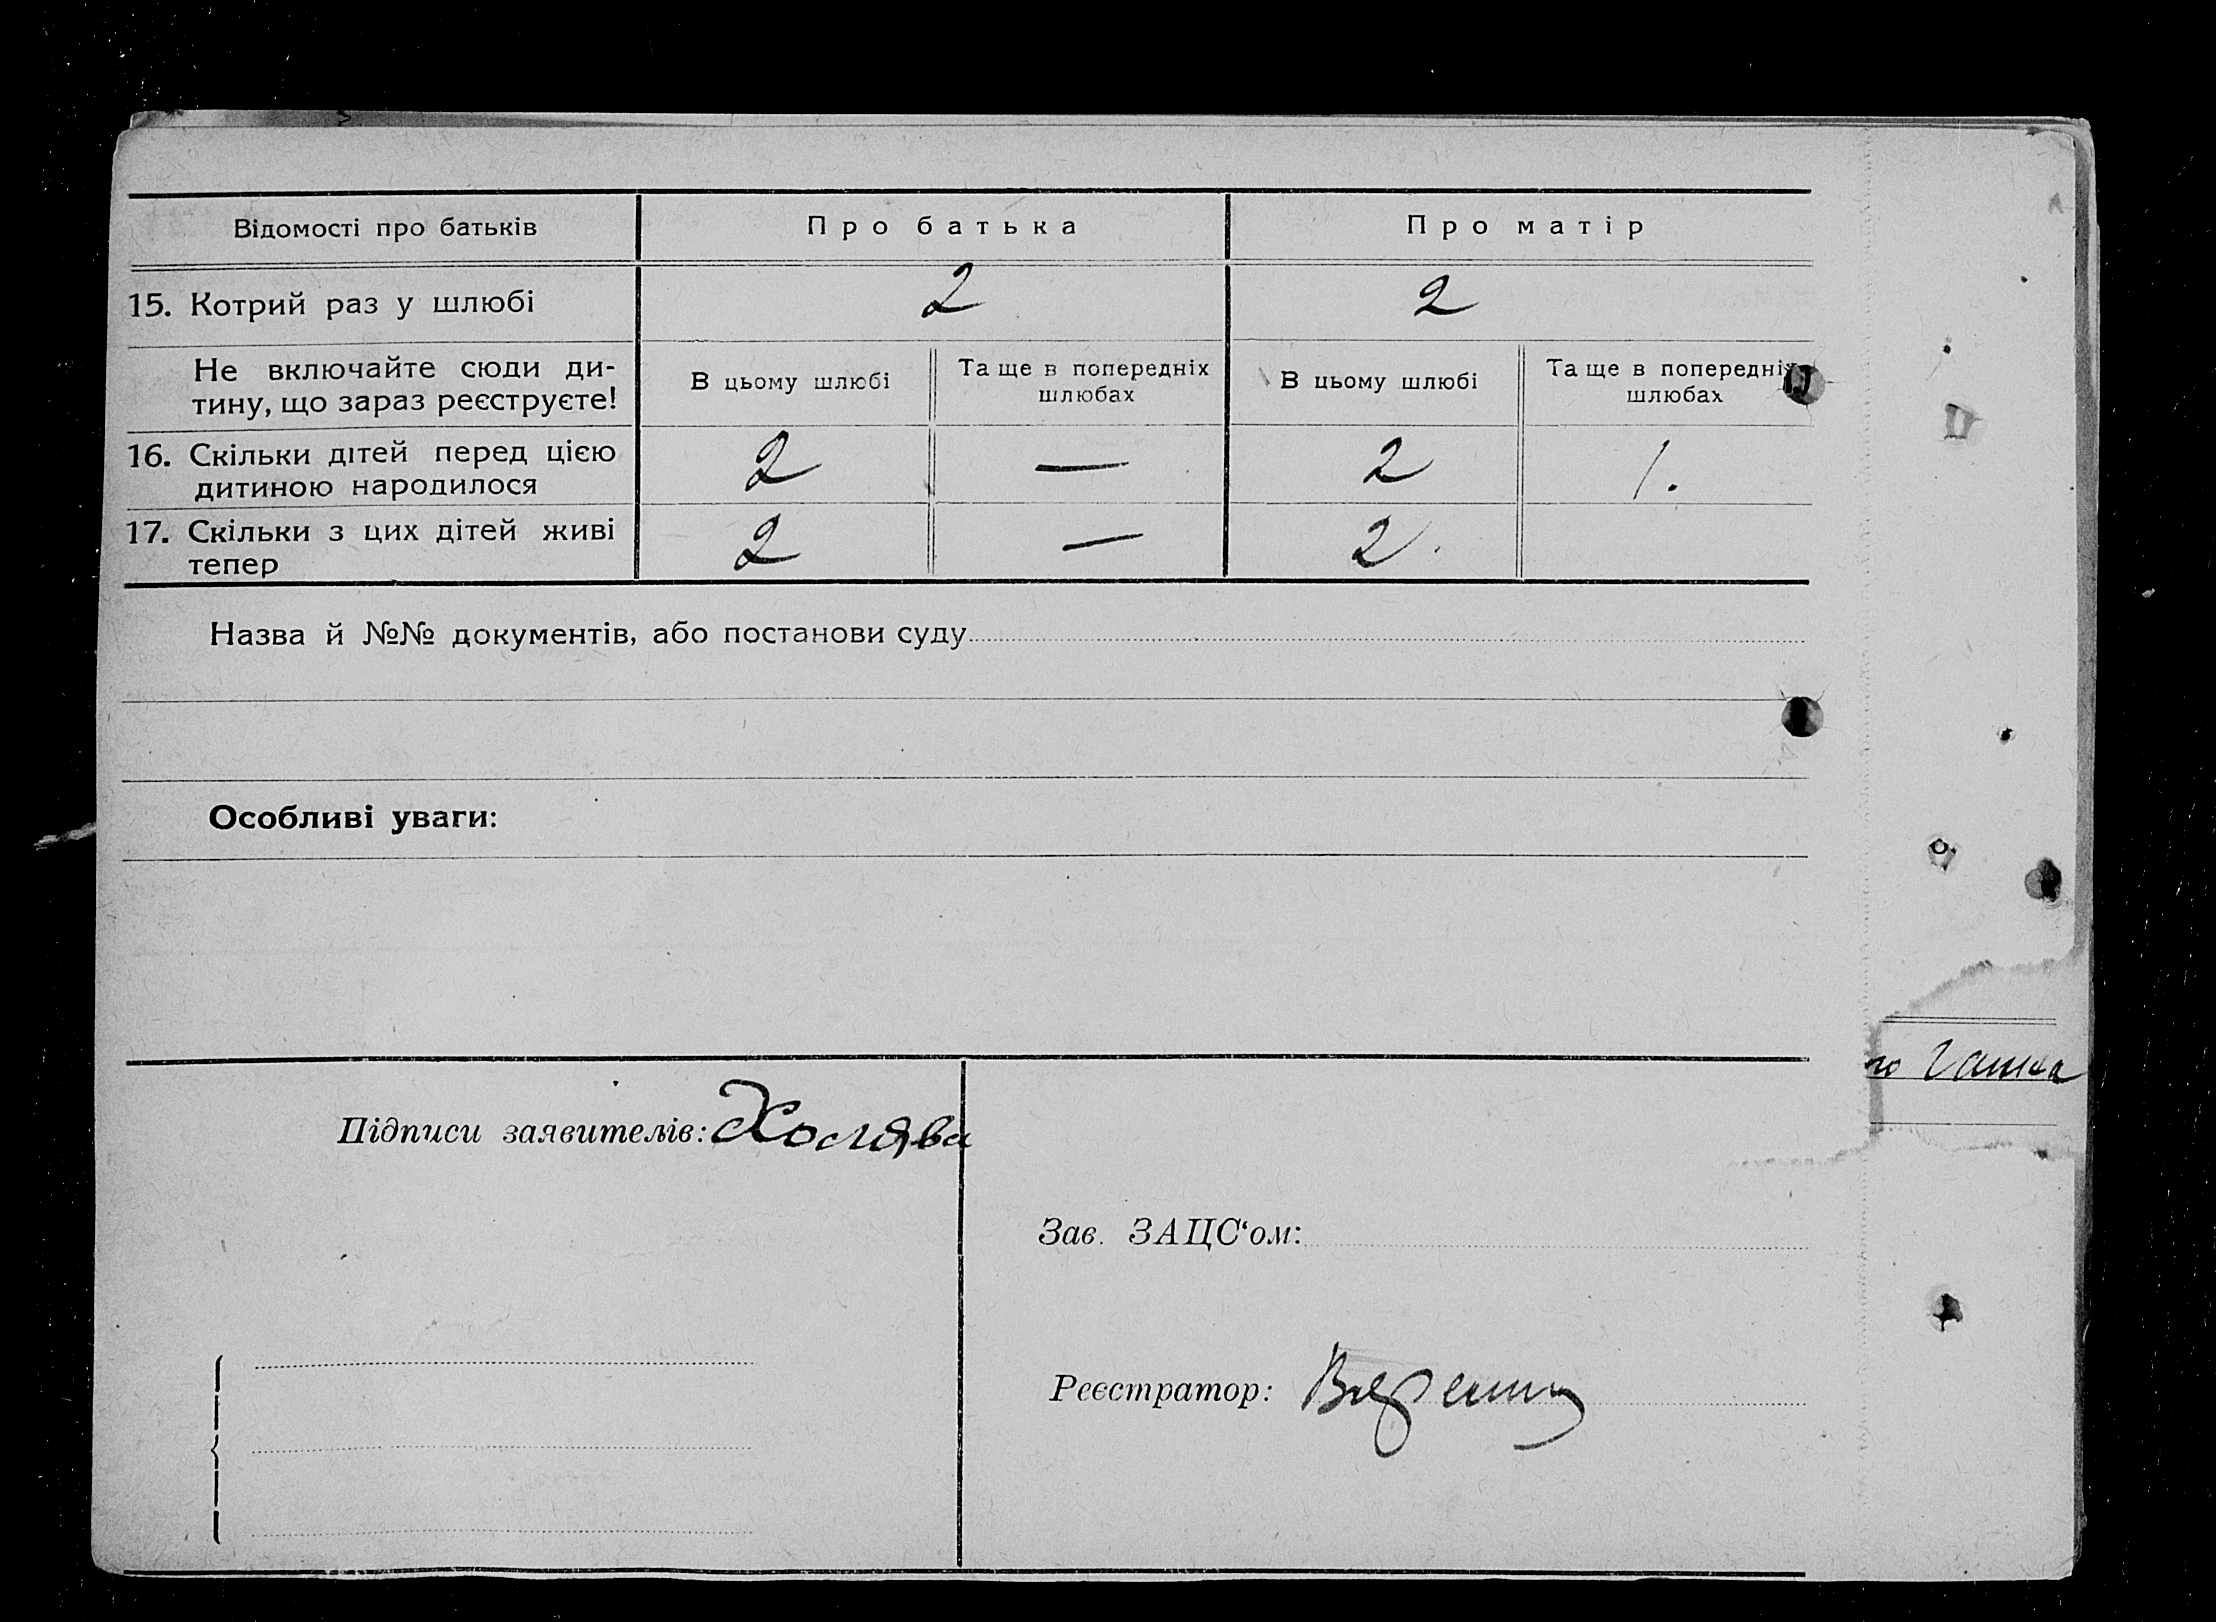 Відомості про батьків
Про батька
Про матір
15. Котрий раз у шлюбі
2
2
Не включайте сюди ди-
тину, що зараз реєструєте!
В цьому шлюбі
Та ще в попередніх
шлюбах
В цьому шлюбі
Та ще в попередніх
шлюбах
16. Скільки дітей перед цією
дитиною народилося
2
—
2
1.
17. Скільки з цих дітей живі
тепер
2
—
2.
Назва й №№ документів, або постанови суду
Особливі уваги:
Підписи заявителів: Холява
Зав. ЗАЦС‘ом:
Реєстратор: